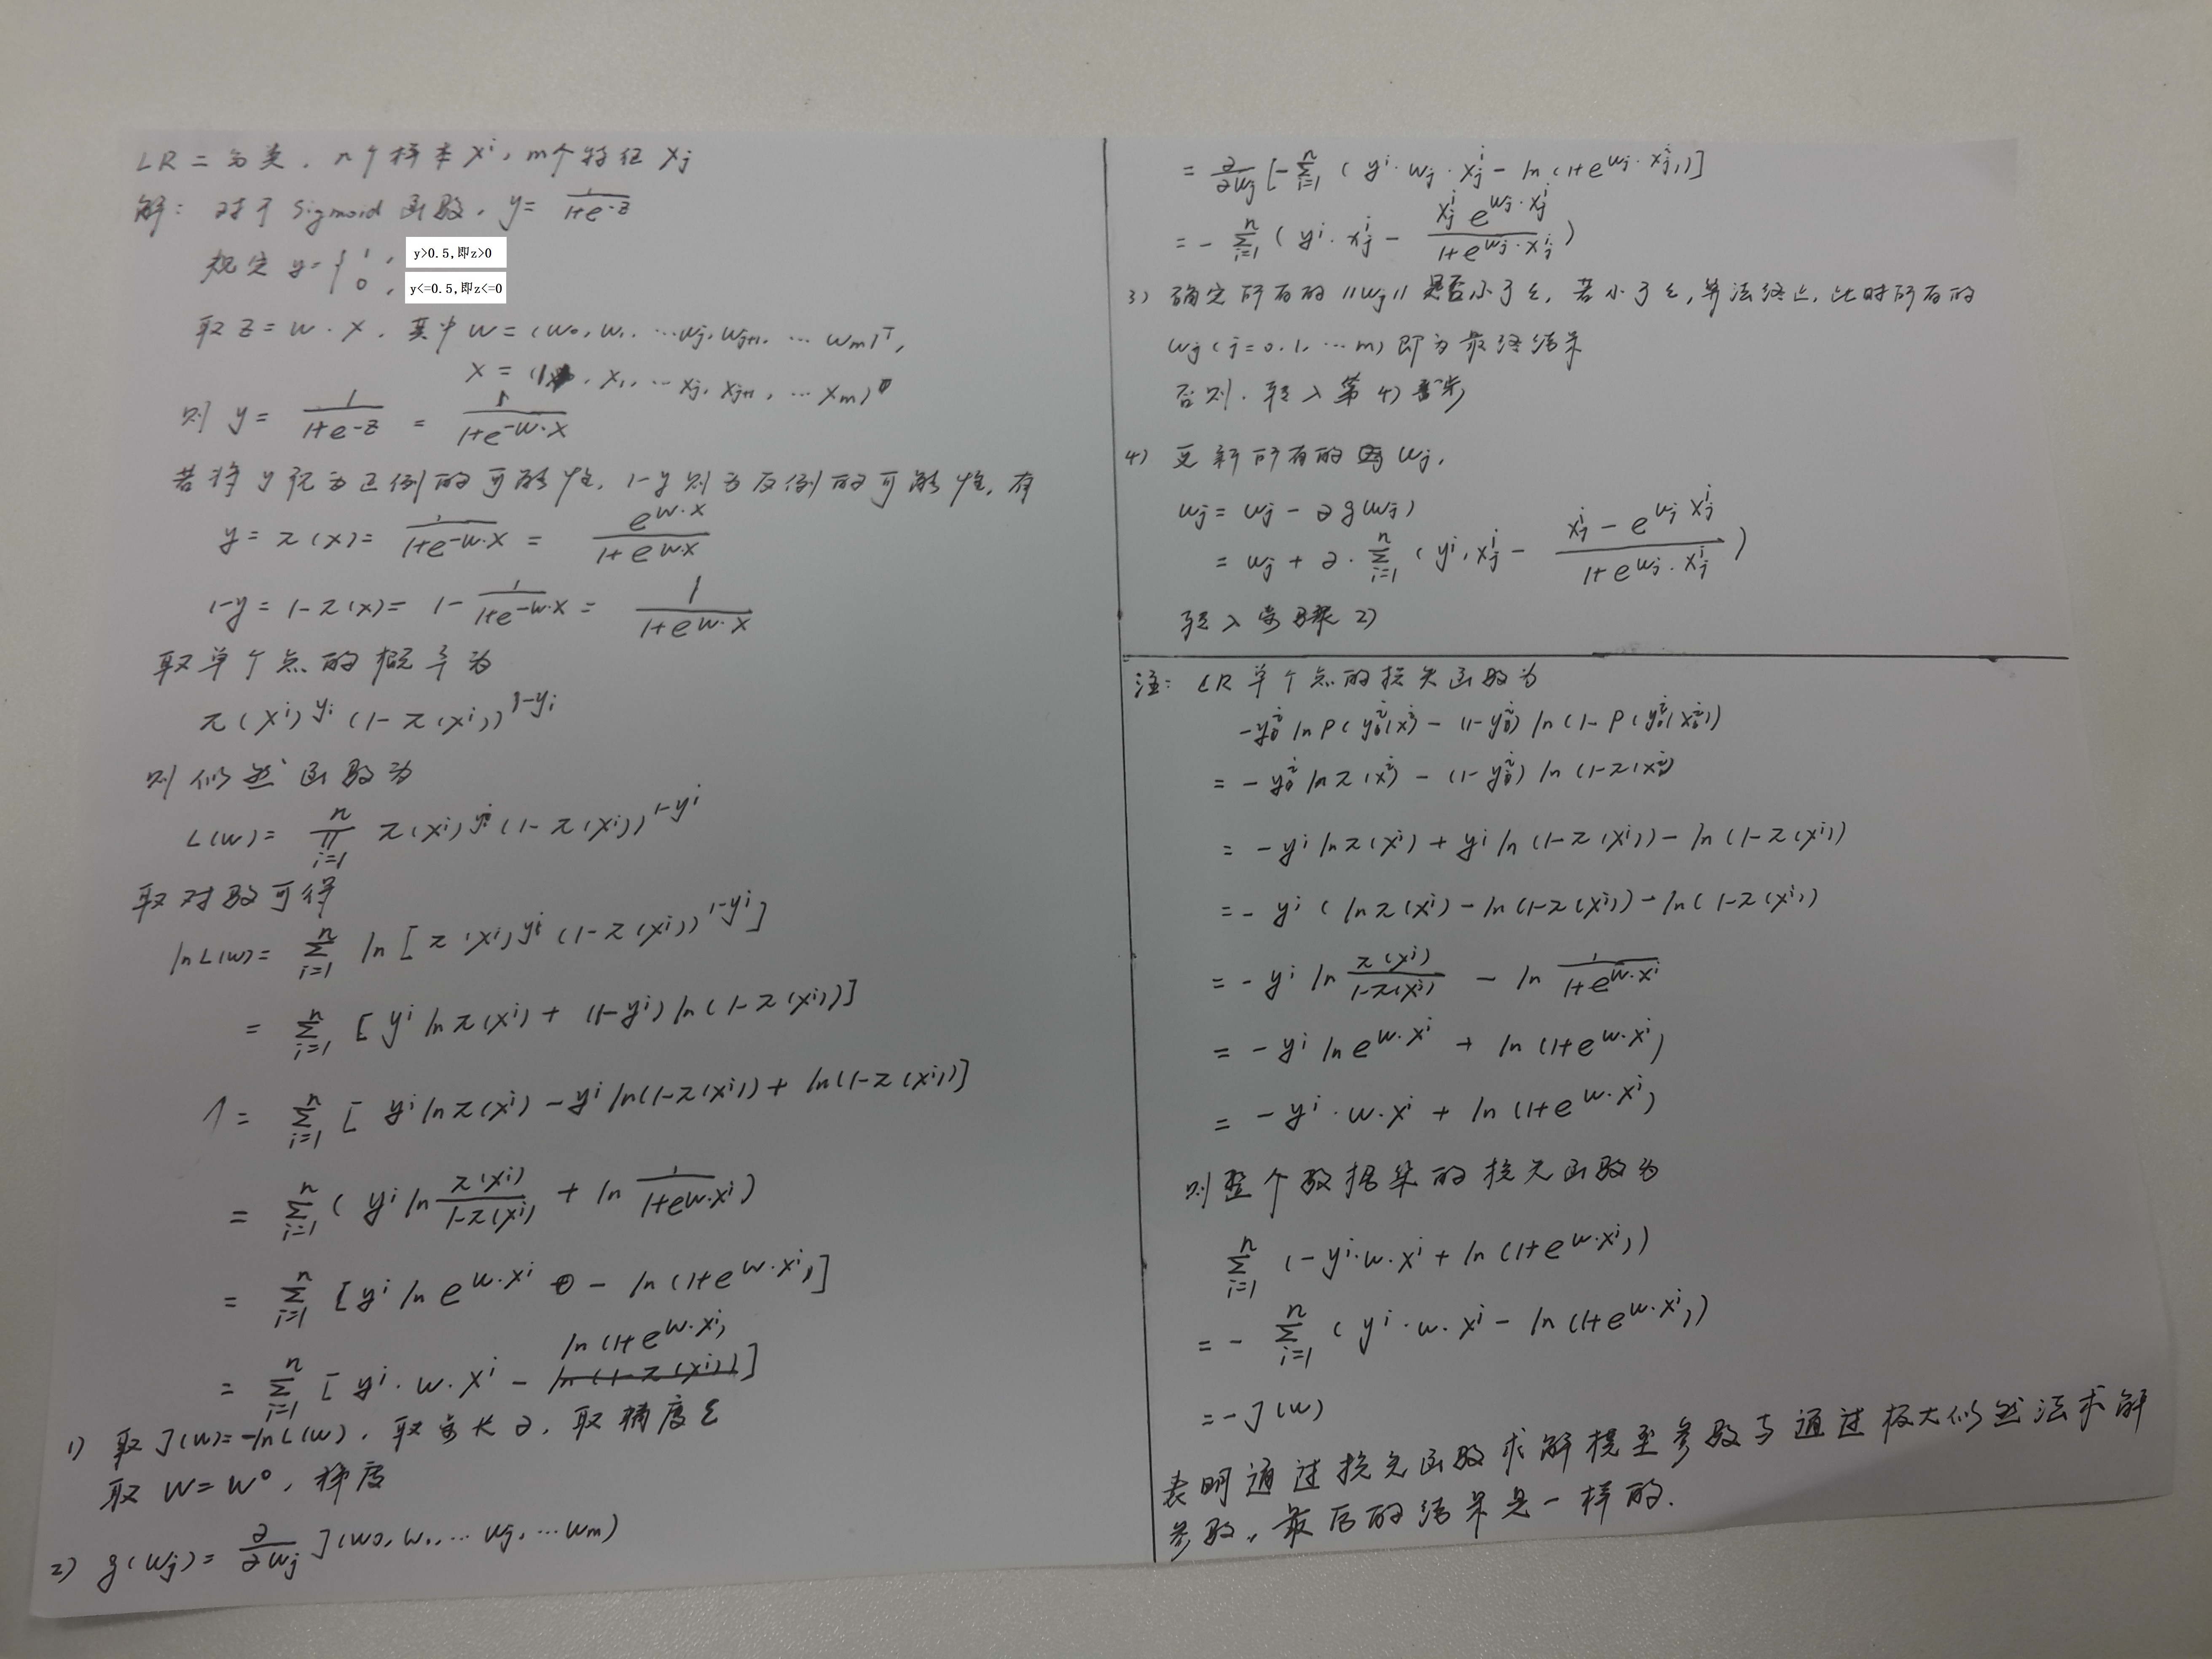 LR二分类，n个样本 xⁱ，m个特征 xⱼ
解：对于 Sigmoid 函数，y = 1/(1+e^(-z))
规定 y = { 1,  y>0.5,即z>0
0,  y<=0.5,即z<=0
取 z = w·x，其中 w = (w₀, w₁, …wⱼ, wⱼ₊₁, … wₘ)ᵀ,
x = (1, x₁, … xⱼ, xⱼ₊₁, … xₘ)
则 y = 1/(1+e^(-z)) = 1/(1+e^(-w·x))
若将 y 视为正例的可能性，1-y 则为反例的可能性，有
y = π(x) = 1/(1+e^(-w·x)) = e^(w·x)/(1+e^(w·x))
1-y = 1-π(x) = 1 - 1/(1+e^(-w·x)) = 1/(1+e^(w·x))
取单个点的概率为
π(xⁱ)^(yi) (1-π(xⁱ))^(1-yi)
则似然函数为
L(w) = ∏_{i=1}^{n} π(xⁱ)^(yⁱ) (1-π(xⁱ))^(1-yⁱ)
取对数可得
ln L(w) = ∑_{i=1}^{n} ln [π(xⁱ)^(yⁱ) (1-π(xⁱ))^(1-yⁱ)]
= ∑_{i=1}^{n} [yⁱ ln π(xⁱ) + (1-yⁱ) ln(1-π(xⁱ))]
= ∑_{i=1}^{n} [yⁱ ln π(xⁱ) - yⁱ ln(1-π(xⁱ)) + ln(1-π(xⁱ))]
= ∑_{i=1}^{n} (yⁱ ln π(xⁱ)/(1-π(xⁱ)) + ln 1/(1+e^(w·xⁱ)))
= ∑_{i=1}^{n} [yⁱ ln e^(w·xⁱ) - ln(1+e^(w·xⁱ))]
= ∑_{i=1}^{n} [yⁱ·w·xⁱ - ln(1+e^(w·xⁱ))]
1) 取 J(w) = -ln L(w)，取步长 ∂，取精度 ε
取 w = w⁰，梯度
2) g(wⱼ) = ∂/∂wⱼ J(w₀, w₁, … wⱼ, … wₘ)
= ∂/∂wⱼ [-∑_{i=1}^{n} (yⁱ·wⱼ·xⱼⁱ - ln(1+e^(wⱼ·xⱼⁱ)))]
= -∑_{i=1}^{n} (yⁱ·xⱼⁱ - xⱼⁱ e^(wⱼ·xⱼⁱ)/(1+e^(wⱼ·xⱼⁱ)))
3) 确定所有的 ||wⱼ|| 是否小于 ε，若小于 ε，算法终止，此时所有的
wⱼ (j=0,1,…m) 即为最终结果
否则，转入第4)步
4) 更新所有的 wⱼ，
wⱼ = wⱼ - ∂g(wⱼ)
= wⱼ + ∂·∑_{i=1}^{n} (yⁱ·xⱼⁱ - (xⱼⁱ - e^(wⱼ xⱼⁱ))/(1+e^(wⱼ·xⱼⁱ)))
转入步骤2)
注：LR单个点的损失函数为
-yⁱ ln P(yⁱ|xⁱ) - (1-yⁱ) ln(1-P(yⁱ|xⁱ))
= -yⁱ ln π(xⁱ) - (1-yⁱ) ln(1-π(xⁱ))
= -yⁱ ln π(xⁱ) + yⁱ ln(1-π(xⁱ)) - ln(1-π(xⁱ))
= -yⁱ (ln π(xⁱ) - ln(1-π(xⁱ)) - ln(1-π(xⁱ))
= -yⁱ ln π(xⁱ)/(1-π(xⁱ)) - ln 1/(1+e^(w·xⁱ))
= -yⁱ ln e^(w·xⁱ) + ln(1+e^(w·xⁱ))
= -yⁱ·w·xⁱ + ln(1+e^(w·xⁱ))
则整个数据集的损失函数为
∑_{i=1}^{n} (-yⁱ·w·xⁱ + ln(1+e^(w·xⁱ)))
= -∑_{i=1}^{n} (yⁱ·w·xⁱ - ln(1+e^(w·xⁱ)))
= -J(w)
表明通过损失函数求解模型参数与通过极大似然法求解
参数，最后的结果是一样的.